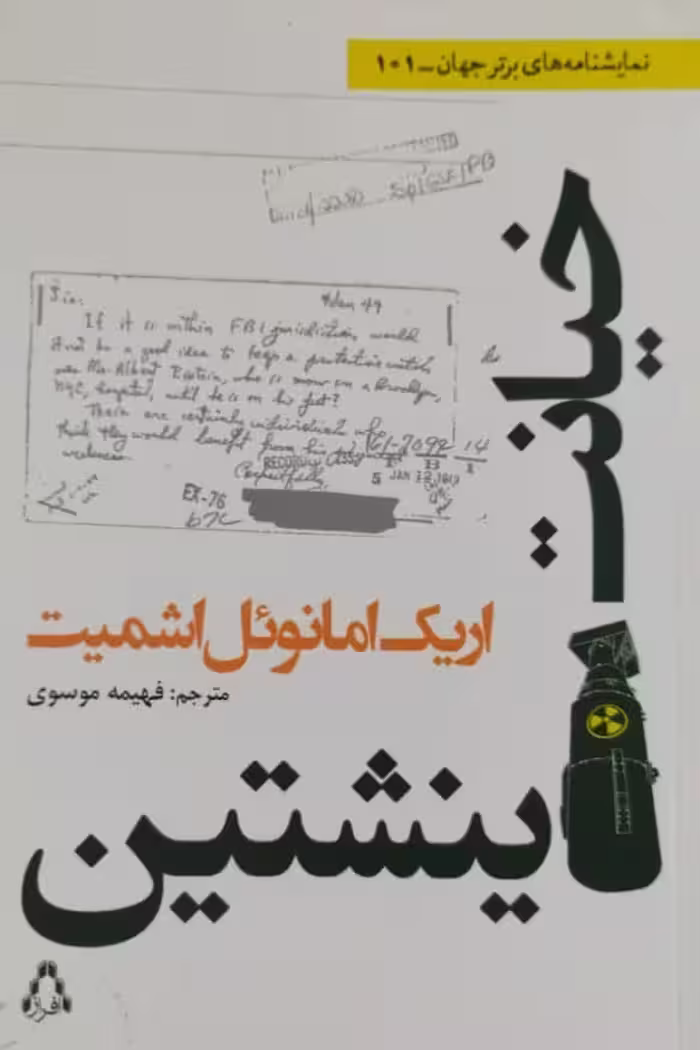 نمایشنامه‌های برتر جهان - ۱۰۱
خیانت
4 Jan 49
Sir:
If it is within FBI jurisdiction, would
it not be a good idea to keep a protective watch
over Mr. Albert Einstein, who is now in a Brooklyn,
NYC, hospital, until he is on his feet?
There are certainly individuals who
think they would benefit from his
weakness.
61-7099 14
RECORDED
Respectfully,
EX-76
b7C
اریک امانوئل اشمیت
مترجم: فهیمه موسوی
اینشتین
افراز